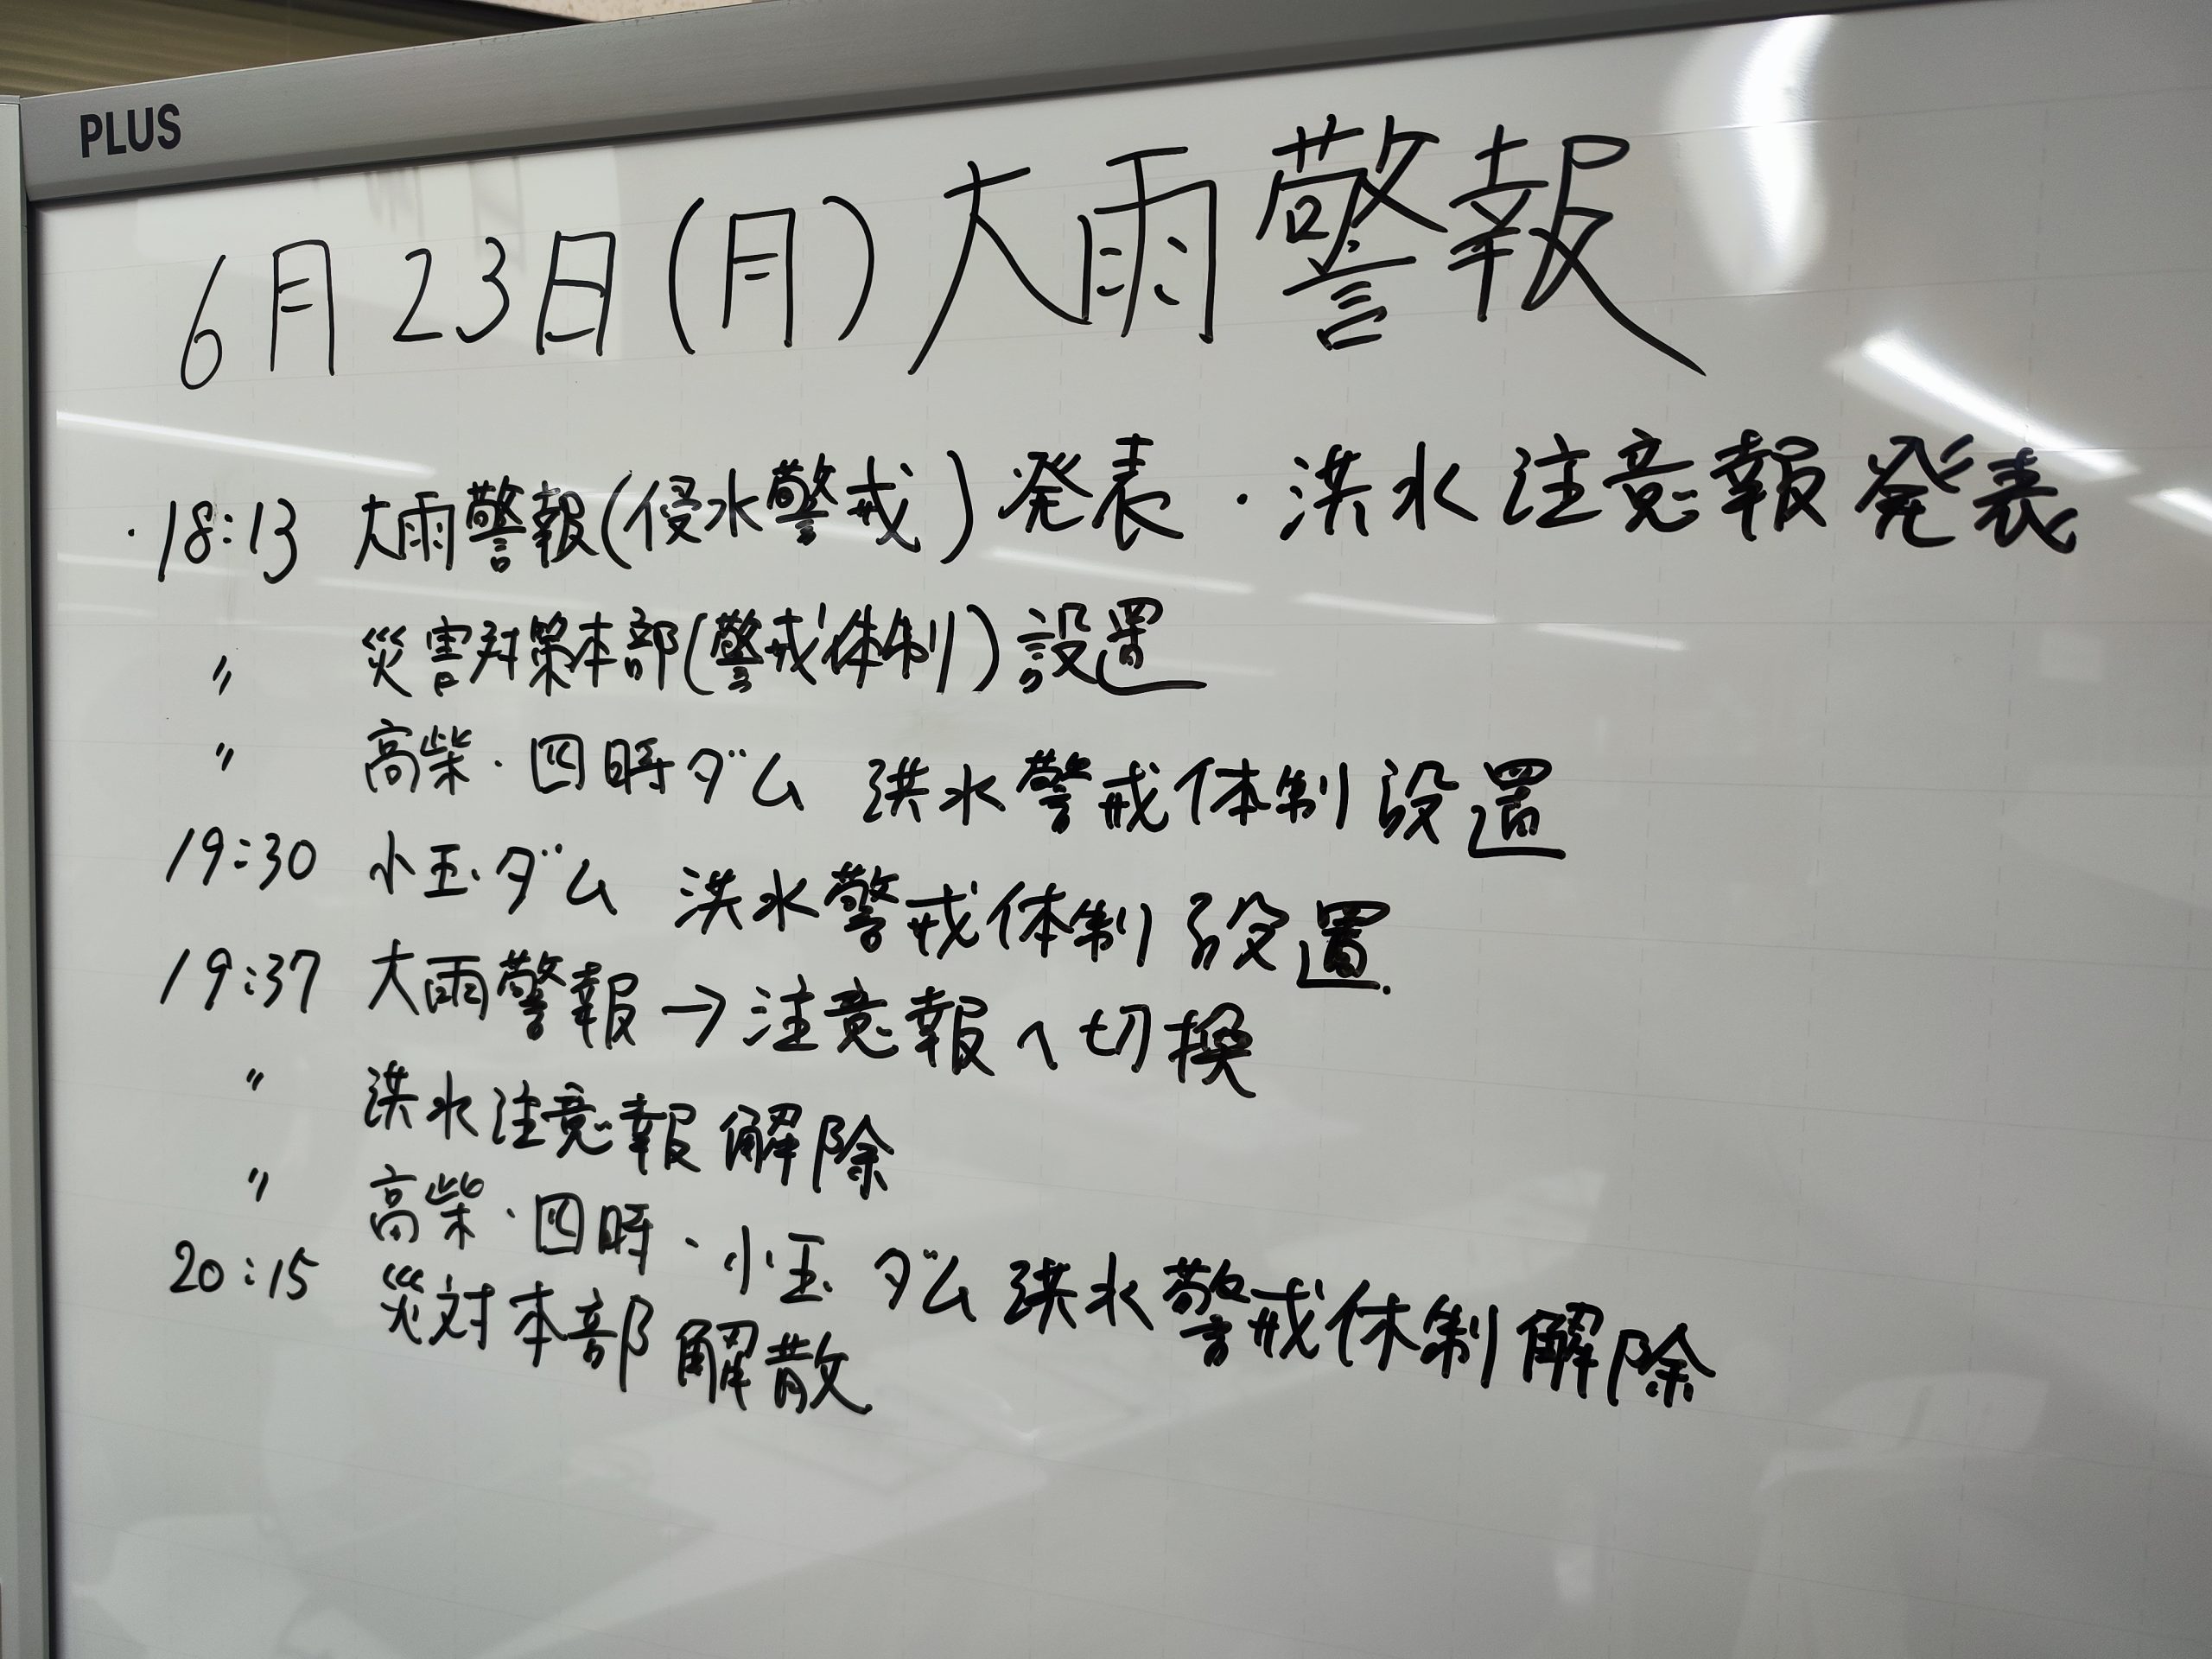 PLUS
6月23日(月)大雨警報
・18:13 大雨警報(侵水警戒)発表・洪水注意報発表
〃 災害対策本部(警戒体制)設置
〃 高柴・四時ダム 洪水警戒体制設置
19:30 小玉ダム 洪水警戒体制設置.
19:37 大雨警報→注意報へ切換
〃 洪水注意報解除
〃 高柴・四時・小玉ダム洪水警戒体制解除
20:15 災対本部解散